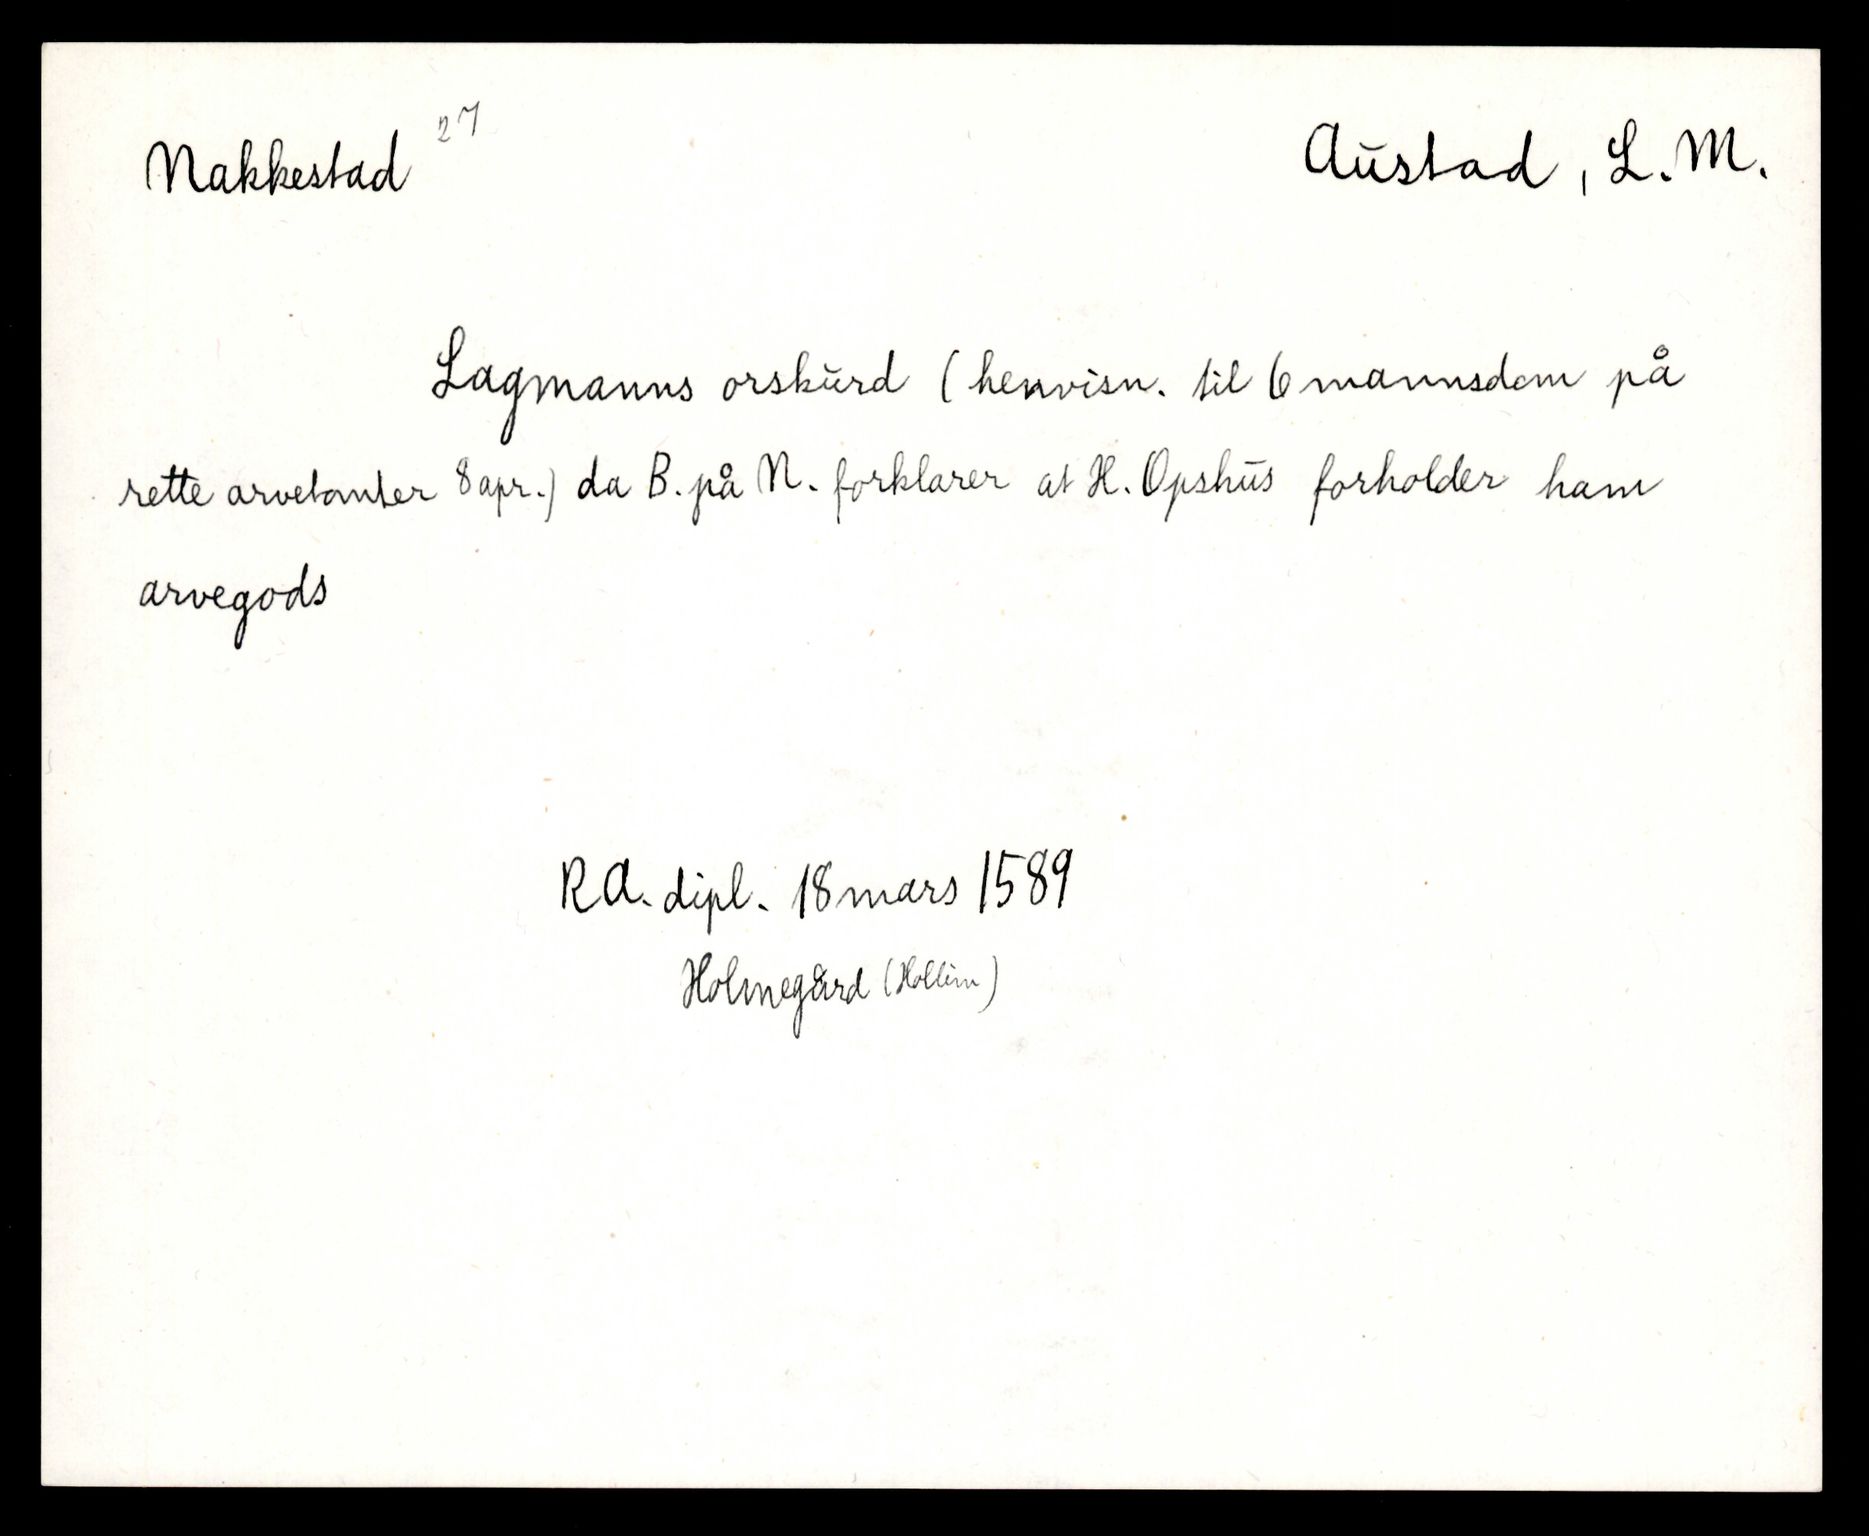 Nakkestad 27 Austad, L. M.
Lagmanns orskurd (henvisn. til 6 mannsdom på
rette arvetomter 8 apr.) da B. på N. forklarer at H. Opshus forholder ham
arvegods
RA. dipl. 18 mars 1589
Holmegård (Hollim)